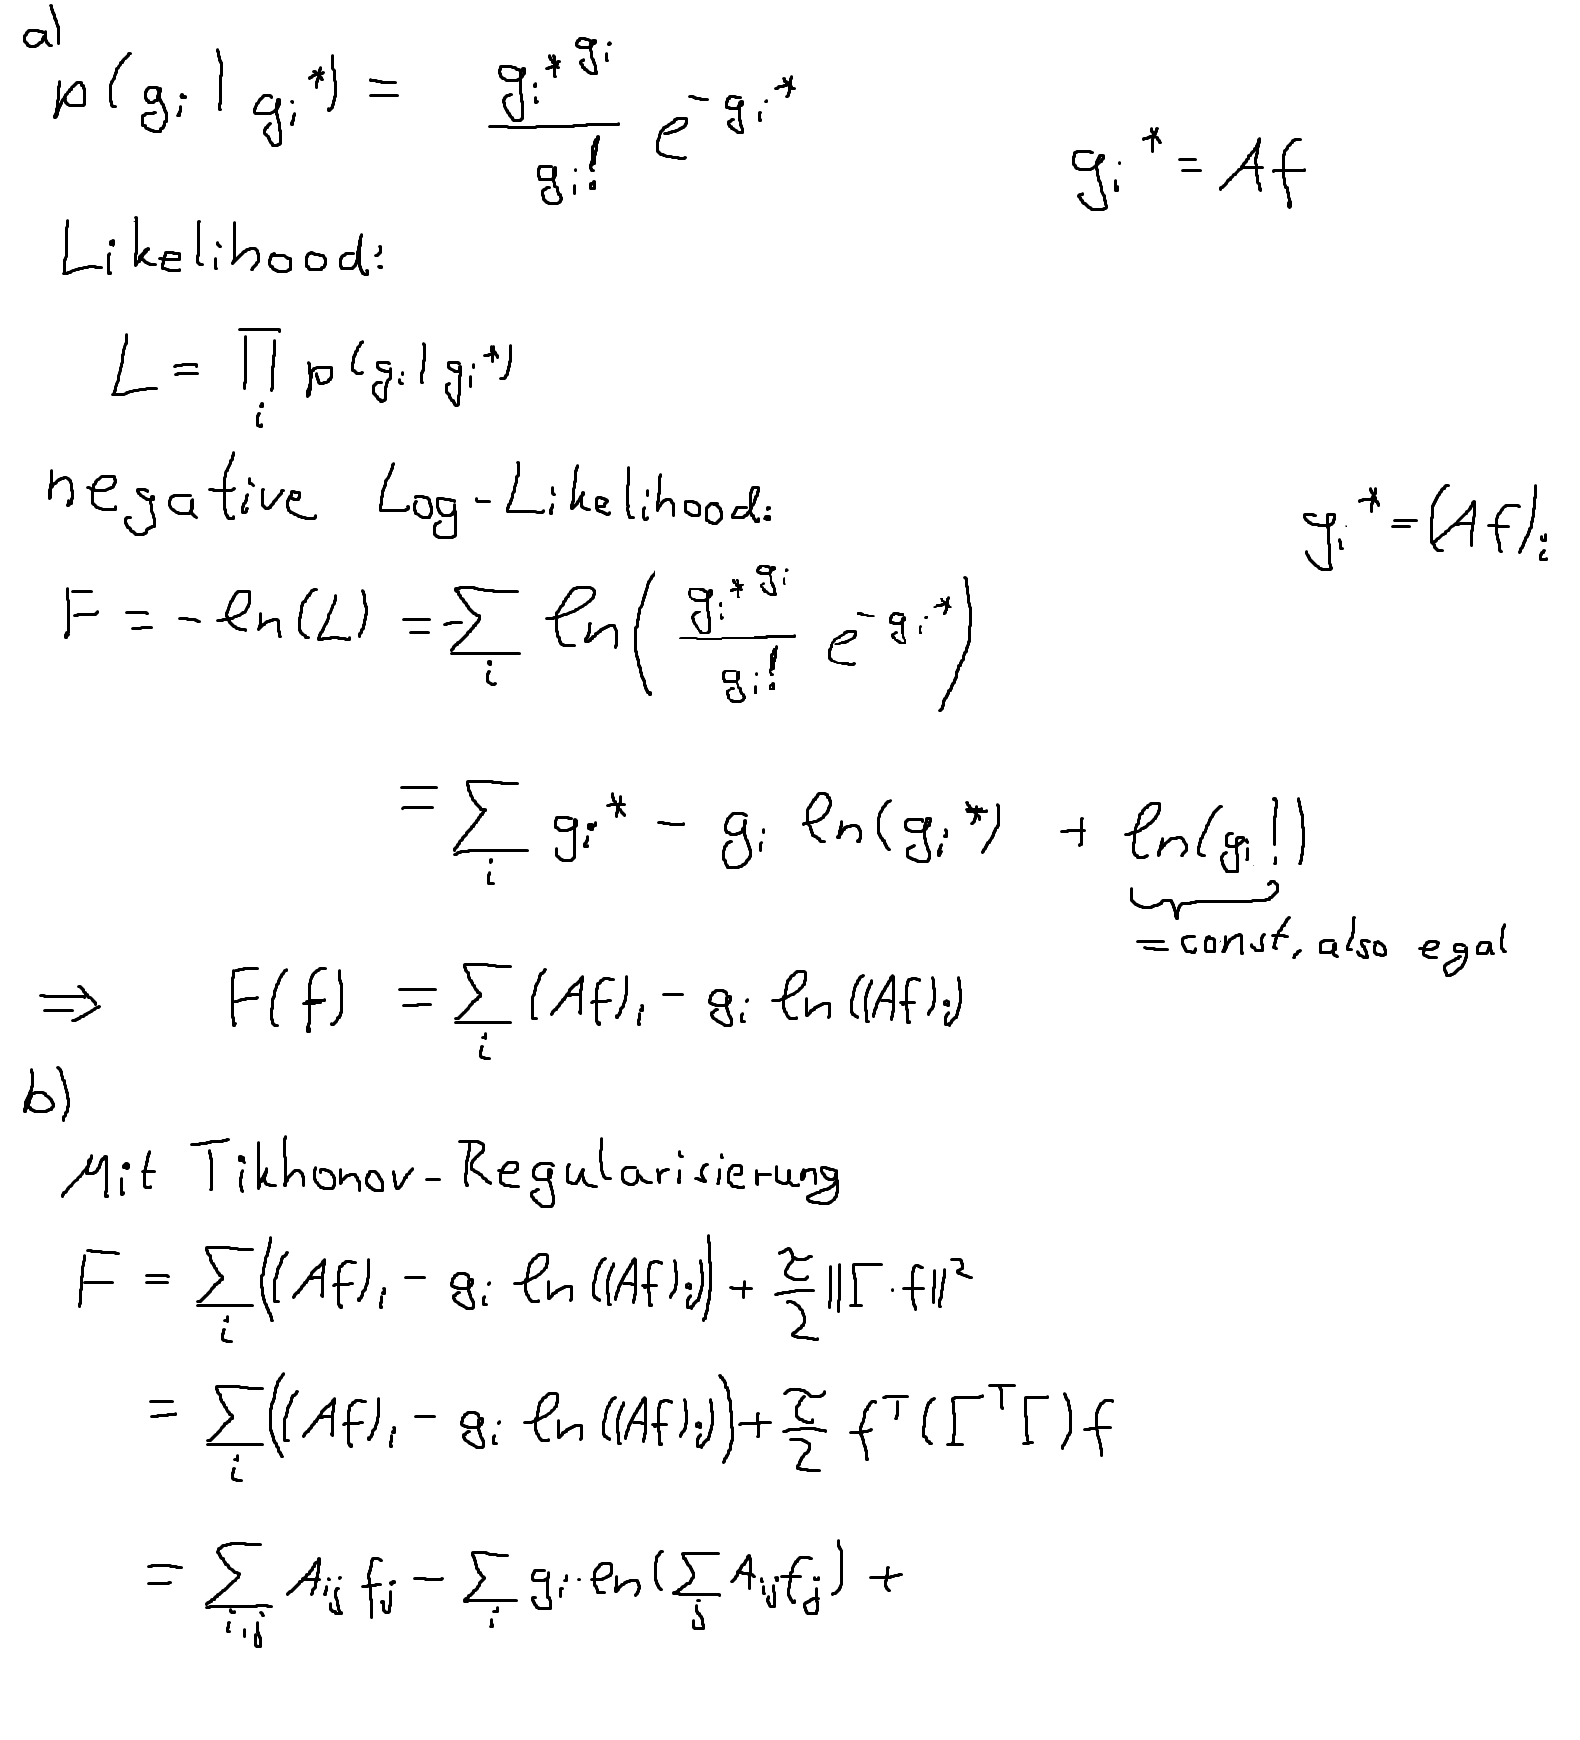 a)
p(g_i | g_i^*) = \frac{g_i^{* g_i}}{g_i!} e^{-g_i^*}
g_i^* = Af
Likelihood:
L = \prod_i p(g_i | g_i^*)
negative Log-Likelihood:
g_i^* = (Af)_i
F = -ln(L) = -\sum_i ln( \frac{g_i^{* g_i}}{g_i!} e^{-g_i^*} )
= \sum_i g_i^* - g_i ln(g_i^*) + ln(g_i!)
= const, also egal
⇒ F(f) = \sum_i (Af)_i - g_i ln((Af)_i)
b)
Mit Tikhonov-Regularisierung
F = \sum_i ((Af)_i - g_i ln((Af)_i)) + \frac{τ}{2} ||Γ·f||^2
= \sum_i ((Af)_i - g_i ln((Af)_i)) + \frac{τ}{2} f^T (Γ^T Γ) f
= \sum_{i,j} A_{ij} f_j - \sum_i g_i · ln(\sum_j A_{ij} f_j) +